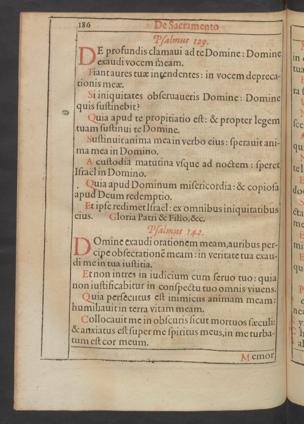 186 De Sacramento
Psalmus 129.
DE profundis clamaui ad te Domine: Domine
exaudi vocem meam.
Fiant aures tuæ intendentes: in vocem depreca-
tionis meæ.
Si iniquitates obseruaueris Domine: Domine
quis sustinebit?
Quia apud te propitiatio est: & propter legem
tuam sustinui te Domine.
Sustinuit anima mea in verbo eius: sperauit ani-
ma mea in Domino.
A custodia matutina vsque ad noctem: speret
Israel in Domino.
Quia apud Dominum misericordia: & copiosa
apud Deum redemptio.
Et ipse redimet Israel: ex omnibus iniquitatibus
eius. Gloria Patri & Filio, &c.
Psalmus 142.
DOmine exaudi orationem meam, auribus per-
cipe obsecrationē meam: in veritate tua exau-
di me in tua iustitia.
Et non intres in iudicium cum seruo tuo: quia
non iustificabitur in conspectu tuo omnis viuens.
Quia persecutus est inimicus animam meam:
humiliauit in terra vitam meam.
Collocauit me in obscuris sicut mortuos sæculi:
& anxiatus est super me spiritus meus, in me turba-
tum est cor meum.
Memor